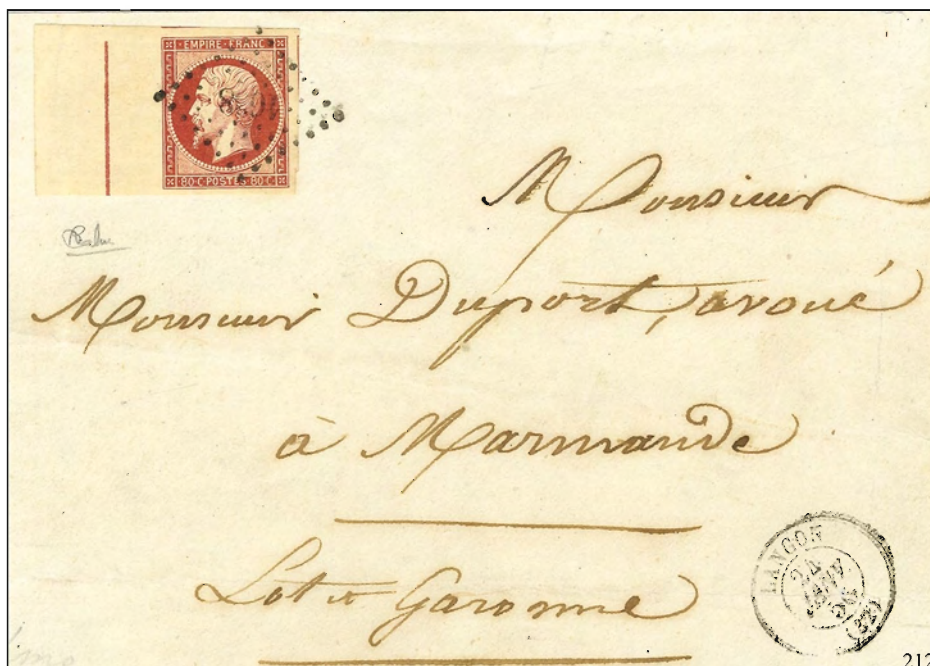 EMPIRE FRANC
80·C POSTES 80·C
Monsieur
Monsieur Duport, avoué
à Marmande
Lot et Garonne
LANGON
24
JANV
(32)
212